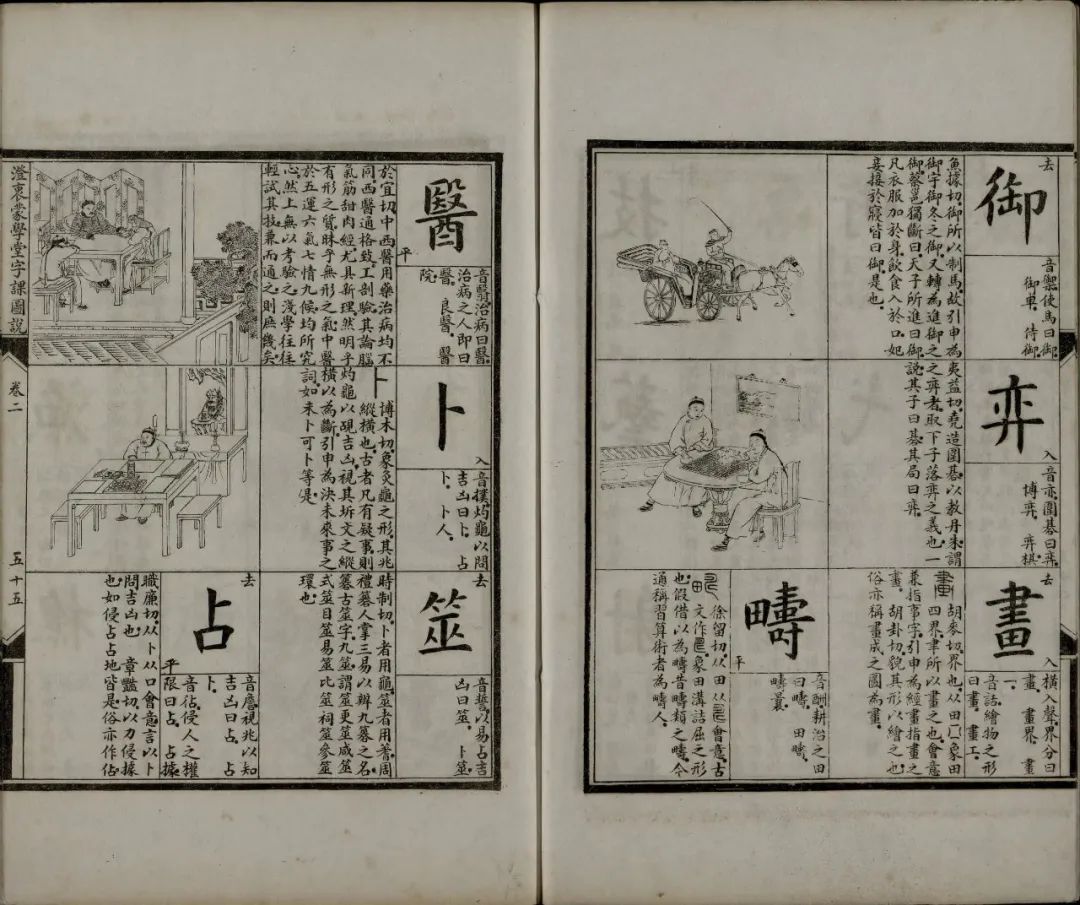 去
御
音禦使馬曰御
御車。侍御
魚據切。御所以制馬。故引申為
御字御冬之御。又轉為進御之
御。蔡邕獨斷曰。天子所進曰御
凡衣服加於身。飲食入於口。妃
妾接於寢。皆曰御是也。
弈
入
音亦。圍棊曰弈
博弈。弈棋
夷益切。堯造圍棊以教丹朱。謂
之弈者。取下子落弈之義也。一
說其子曰棊。其局曰弈。
去
畫
入
橫入聲。界分曰
畫。畫界。畫
一。
音話。繪物之形
曰畫。畫工。
胡麥切。界也。从田。象田
四界。聿所以畫之也。會意
兼指事字。引申為經畫指畫之
畫。胡卦切。貌其形以繪之也。
俗亦稱畫成之圖為畫。
疇
平
音酬。耕治之田
曰疇。田疇。
疇曩。
徐留切。从田。會意。古
文作。象田溝詰屈之形
也。假借以為疇昔疇類之疇。今
通稱習算術者為疇人。
醫
平
音翳。治病曰醫
治病之人即曰
醫。良醫。醫
院。
於宜切。中西醫用藥治病均不
同。西醫通格致。工剖驗。其論腦
氣筋甜肉經。尤具新理。然明乎
有形之質。昧乎無形之氣。中醫
於五運六氣七情九候。均所究
心。然上無以考驗之。淺學往往
輕試其技。兼而通之。則庶幾矣。
卜
入
音撲。灼龜以問
吉凶曰卜。占
卜。卜人。
博木切。象炙龜之形。其兆
縱橫也。古者凡有疑事。則
灼龜以覘吉凶。視其坼文之縱
橫以為斷。引申為決未來事之
詞。如未卜可卜等是。
去
筮
音誓。以易占吉
凶曰筮。卜筮
時制切。卜者用龜。筮者用蓍。周
禮簭人掌三易以辨九簭之名。
簭古筮字。九筮。謂筮更筮咸筮
式筮目筮易筮比筮祠筮參筮
環也。
去
占
平
音詹。視兆以知
吉凶曰占。占
卜。
音佔。侵人之權
限曰占。占據
職廉切。从卜从口。會意。言以卜
問吉凶也。章豔切。以力侵據
也。如侵占占地皆是。俗亦作佔
澄衷蒙學堂字課圖說
卷二
五十五